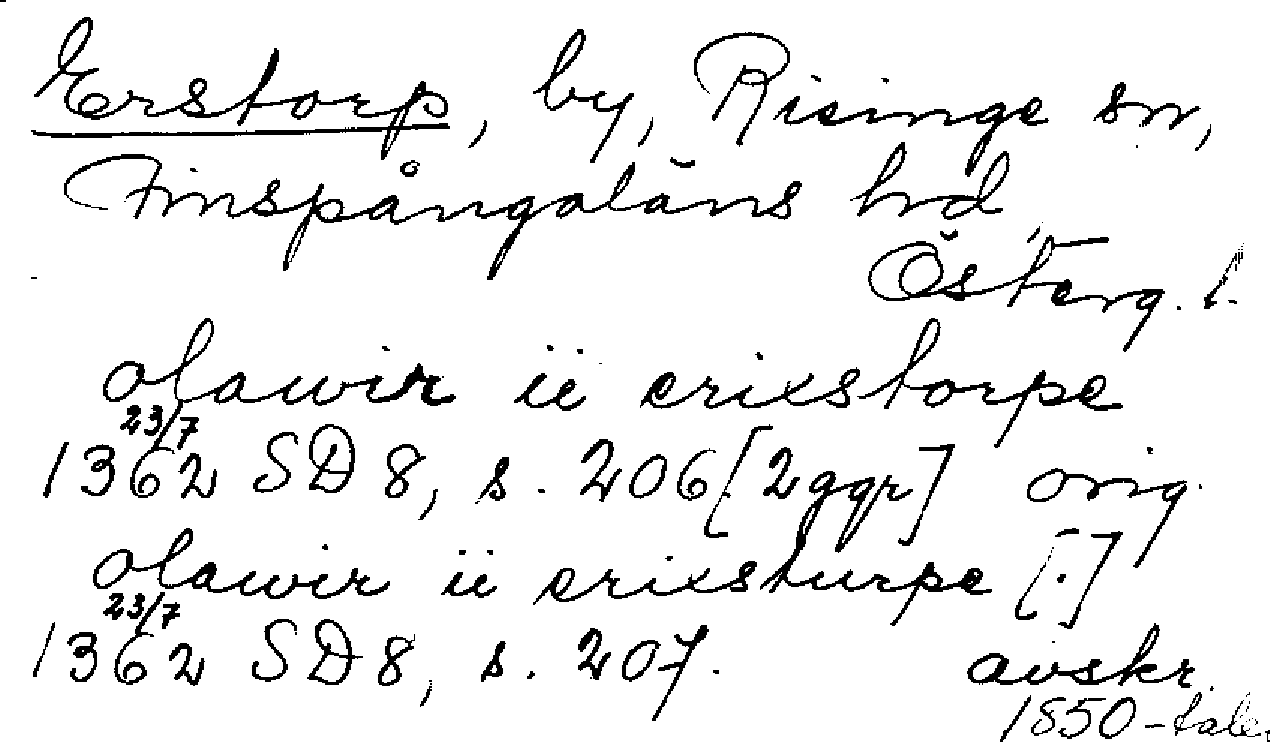 Erstorp, by, Risinge sn,
Finspångaläns hd,
Österg. l.
olawir ii erixstorpe
23/7
1362 SD 8, s. 206 [2 ggr] orig.
olawir ii erixsturpe [.]
23/7
1362 SD 8, s. 207. avskr.
1850-talet